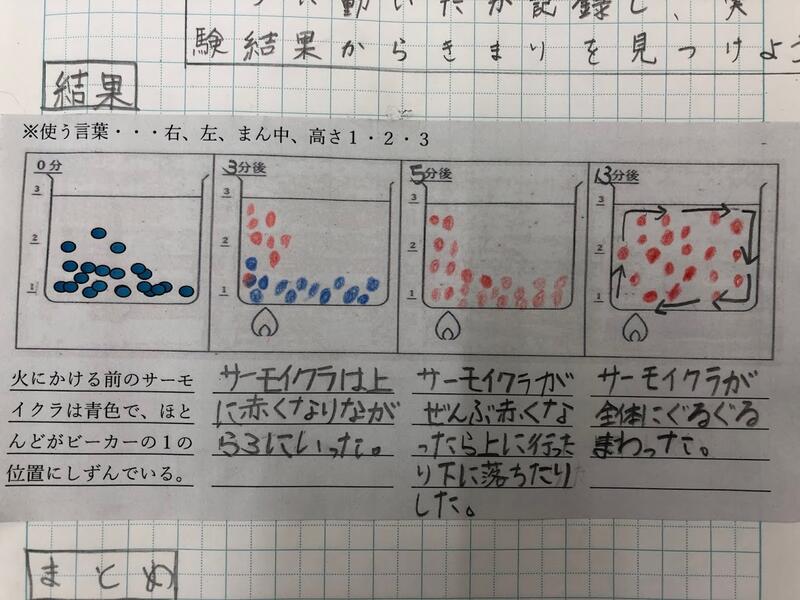 験結果からきまりを見つけよう
結果
※使う言葉・・・右、左、まん中、高さ１・２・３
０分
3
2
1
3分後
3
2
1
5分後
3
2
1
13分後
3
2
1
火にかける前のサーモ
イクラは青色で、ほと
んどがビーカーの１の
位置にしずんでいる。
サーモイクラは上
に赤くなりなが
ら3にいった。
サーモイクラが
ぜんぶ赤くな
ったら上に行った
り下に落ちたり
した。
サーモイクラが
全体にぐるぐる
まわった。
まとめ